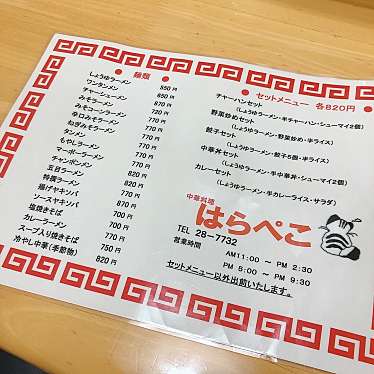 ● 麺類 ●
しょうゆラーメン 550円
ワンタンメン 850円
チャーシューメン 820円
みそラーメン 870円
みそコーンラーメン 720円
辛口みそラーメン 770円
ねぎみそラーメン 770円
タンメン 820円
もやしラーメン 770円
マーボーラーメン 770円
チャンポンメン 770円
五目ラーメン 820円
特製ラーメン 820円
揚げヤキソバ 770円
ソースヤキソバ 700円
塩焼きそば 700円
カレーラーメン 770円
スープ入り焼きそば 750円
冷やし中華(季節物) 820円
● セットメニュー 各820円 ●
チャーハンセット
(しょうゆラーメン・半チャーハン・シューマイ2個)
野菜炒めセット
(しょうゆラーメン・野菜炒め・半ライス)
餃子セット
(しょうゆラーメン・餃子5個・半ライス)
中華丼セット
(しょうゆラーメン・半中華丼・シューマイ2個)
カレーセット
(しょうゆラーメン・半カレーライス・サラダ)
中華料理
はらぺこ
TEL 28-7732
営業時間
AM11:00 ~ PM 2:30
PM 5:00 ~ PM 9:30
セットメニュー以外出前いたします。